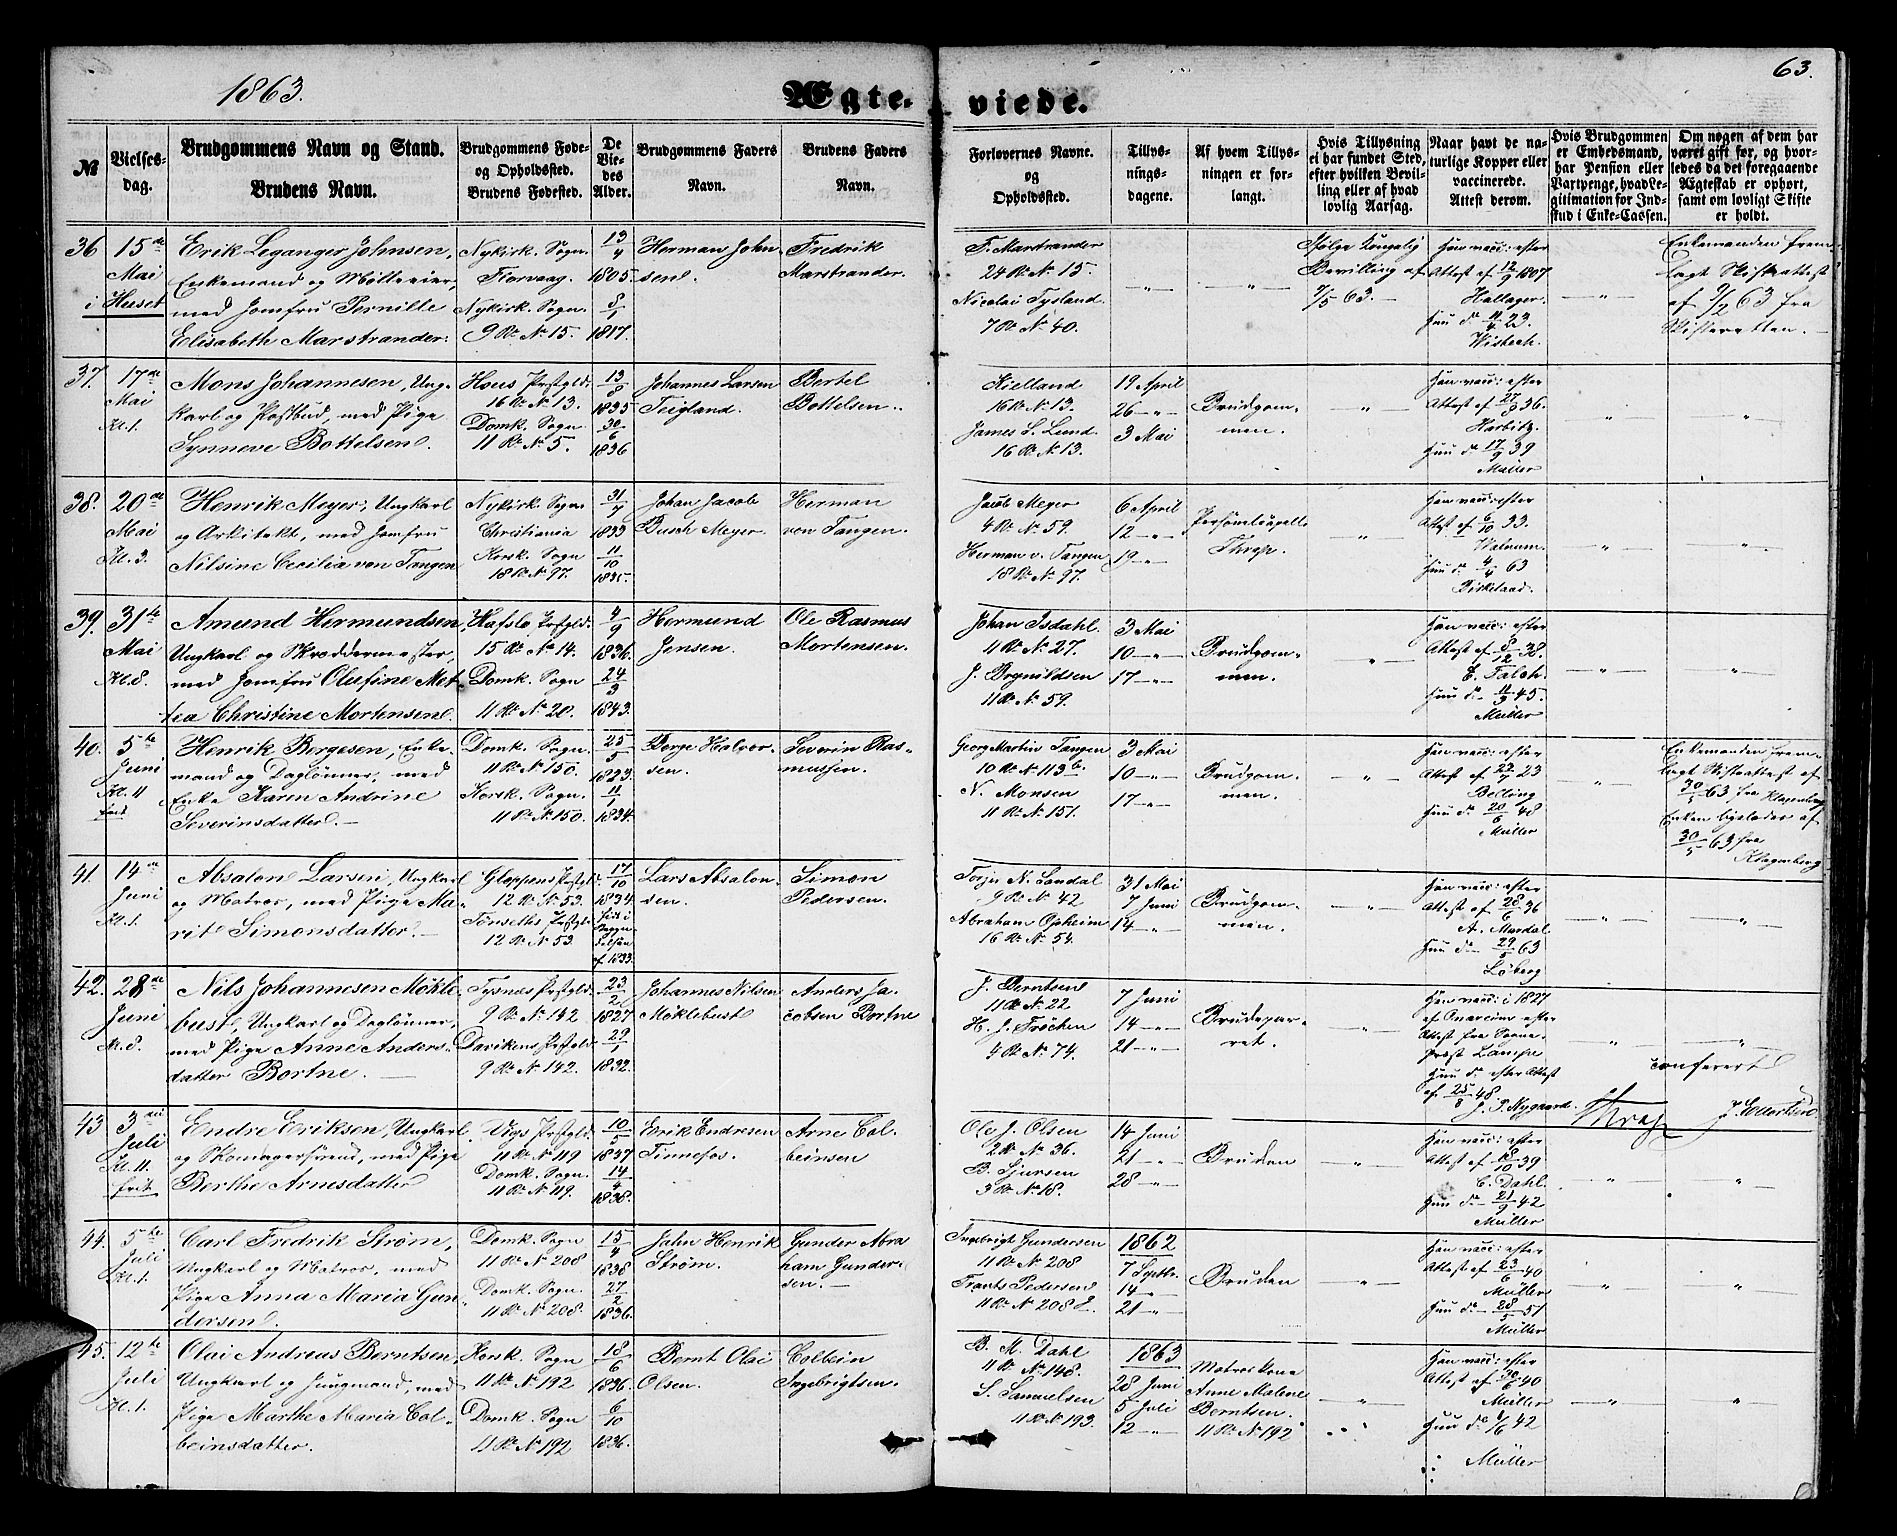 1863.
Ægte-viede.
63.
№
Vielses-dag.
Brudgommens Navn og Stand.
Brudens Navn.
Brudgommens Føde- og Opholdssted.
Brudens Fødested.
De Viedes Alder.
Brudgommens Faders Navn.
Brudens Faders Navn.
Forlovernes Navne. og Opholdssted.
Tillysningsdagene.
Af hvem Tillysningen er forlangt.
Hvis Tillysning ei har fundet Sted, efter hvilken Bevilling eller af hvad lovlig Aarsag.
Naar havt de naturlige Kopper eller vaccinerede. Attest derom.
Hvis Brudgommen er Embedsmand, har Pension eller Vartpenge, hvad Legitimation for Indskud i Enke-Cassen.
Om nogen af dem har været gift før, og hvorledes da det foregaaende Ægteskab er ophørt, samt om lovligt Skifte er holdt.
36 15de Mai i Huset
Erik Leganger Johnsen,
Enkemand og
med Jomfru Pernille
Elisabeth Marstrander.
Nykirk. Sogn
Florvaag.
Nykirk. Sogn
9 R. № 15.
13/4 1805.
8/1 1817.
Herman Johnsen.
Fredrik Marstrander.
F. Marstrander
24 R. № 15.
Nicolai Tysland
7 R. № 40.
Ifølge Kongelig
Bevilling af
7/5 63.
Han vacc: efter
Attest af 12/9 1807
Hallager.
Hun do 11/4 23.
Wisbech.
Enkemanden frem-
lagt Skifteattest
af 9/2 63 fra
Skifteretten.
37. 17de Mai Kl. 1.
Mons Johannesen, Ung-
karl og Postbud, med Pige
Synneve Bottelsen.
Hous Præstgld.
16 R. № 13.
Domk. Sogn
11 R. № 5.
13/8 1835
30/6 1836
Johannes Larsen
Teigland.
Bertel
Bottelsen.
Kielland
16 R. № 13.
James L. Lund.
16 R. № 13.
19 April
26 -"-
3 Mai
Brudgommen.
Han vacc: efter
Attest af 27/8 36.
Harbitz.
Hun do 17/9 39
Müller
38. 20de Mai Kl. 3.
Henrik Meyer, Ungkarl
og Arkitekt, med Jomfru
Nilsine Cecilia von Tangen
Nykirk. Sogn
Christiania
Korsk. Sogn
18 R. № 97.
31/7 1833
11/10 1835.
Johan Jacob
Busch Meyer.
Herman
von Tangen.
Jacob Meyer
4 R. № 59.
Herman v. Tangen
18 R. № 97.
6 April
12 -"-
19 -"-
Personelcapell
Thrap.
Han vacc: efter
Attest af 6/10 33.
Walnum.
Hun do 4/4 63
Birkeland.
39. 31te Mai Kl. 8.
Amund Hermundsen,
Ungkarl og Skræddermester,
med Jomfru Olufine Met-
tea Christine Mortensen.
Hafslo Præstgld.
15 R. № 14.
Domk. Sogn
11 R. № 20.
4/9 1836.
24/3 1843.
Hermund
Jensen.
Ole Rasmus
Mortensen.
Johan Isdahl.
11 R. № 27.
J. Brynildsen
11 R. № 59.
3 Mai
10 -"-
17 -"-
Brudgommen.
Han vacc: efter
Attest af 8/12 38.
C. Falch.
Hun do 11/9 45.
Müller
40. 5te Juni Kl. 11 frit
Henrik Børgesen, Enke-
mand og Daglønner, med
Enke Karen Andrine
Severinsdatter.
Domk. Sogn
11 R. № 150.
Korsk. Sogn.
11 R. № 150.
25/5 1823.
11/1 1834.
Børge Halvor-
sen.
Severin Ras-
mussen.
Georg Martin Tangen
10 R. № 113 b.
N. Monsen
11 R. № 151.
3 Mai
10 -"-
17 -"-
Brudgommen.
Han vacc: efter
Attest af 22/7 23
Belling
Hun do 20/6 48
Müller
Enkemanden frem-
lagt Skifteattest af
30/5 63 fra Klagenberg
Enken ligeledes af
30/5 63 fra
Klagenberg
41. 14de Juni Kl. 1.
Absalon Larsen, Ungkarl
og Matros, med Pige Ma-
rit Simonsdatter.
Gloppens Præstgld.
12 R. № 53.
Tønseths Præstgld.
12 R. № 53
17/10 1834
født i
af 1833.
Lars Absalon-
sen.
Simon
Pedersen.
Torjer N. Sandal
9 R. № 42
Abraham Opheim
16 R. № 54.
31 Mai
7 Juni
14 -"-
Brudgommen.
Han vacc: efter
Attest af 28/6 36
A. Murdal
Hun do 29/5 63
Løberg
42. 28de Juni Kl. 8.
Nils Johannesen Møkle-
bust, Ungkarl og Daglønner,
med Pige Anne Anders-
datter Bortne.
Tysnæs Præstgld.
9 R. № 142
Davikens Præstgld.
9 R. № 142.
23/2 1827
29/1 1832.
Johannes Nilsen
Møklebust
Anders Ja-
cobsen Bortne
J. Berntsen
11 R. № 22.
H. J. Frøchen
4 R. № 74.
7 Juni
14 -"-
21 -"-
Brudeparret.
Han vacc: i 1827
af Onarheim efter
Attest fra Sogne-
præst Lampe
Hun do efter Attest
af 25/8 48
J. P. Nygaard.
confereret
Thrap
J. Ellertsen
43 3die Juli Kl. 11. frit
Endre Eriksen, Ungkarl
og Skomagersvend, med Pige
Berthe Arnesdatter
Vigs Præstgld.
11 R. № 119
Domk. Sogn.
11 R. № 119.
10/5 1837
14/4 1838.
Erik Endresen
Finnefos.
Arne Col-
beinsen
Ole J. Olsen
2 R. № 36.
B. Sjursen
3 R. № 18.
14 Juni
21 -"-
28 -"-
Bruden
Han vacc: efter
Attest af 18/10 39
C. Dahl.
Hun do 21/9 42
Müller
44. 5te Juli Kl. 1.
Carl Fredrik Strøm,
Ungkarl og Matros, med
Pige Anna Maria Gun-
dersen.
Domk. Sogn
11 R. № 208
Domk. Sogn.
11 R. № 208.
15/4 1838
27/2 1836.
John Henrik
Strøm.
Gunder Abra
ham Gunder-
sen.
Ingebrigt Gundersen
11 R. № 208
Frants Pedersen
11 R. № 208 E.
1862
7 Septbr.
14 -"-
21 -"-
Bruden
Han vacc: efter
Attest af 23/6 40
Müller
Hun do 28/5 51
Müller
45. 12te Juli Kl. 1.
Olai Andreas Berntsen,
Ungkarl og Jungmand, med
Pige Marthe Maria Col-
beinsdatter.
Korsk. Sogn
11 R. № 192
Domk. Sogn
11 R. № 192
18/6 1836.
6/10 1836.
Bernt Olai
Olsen.
Colbein
Ingebrigtsen.
B. M. Dahl
11 R. № 148.
S. Samuelsen
11 R. № 193.
1863
28 Juni
5 Juli
12 -"-
Matroskone
Anne Malene
Berntsen.
11 R. № 192
Han vacc: efter
Attest af 30/6 40
Müller
Hun do 4/6 42
Müller